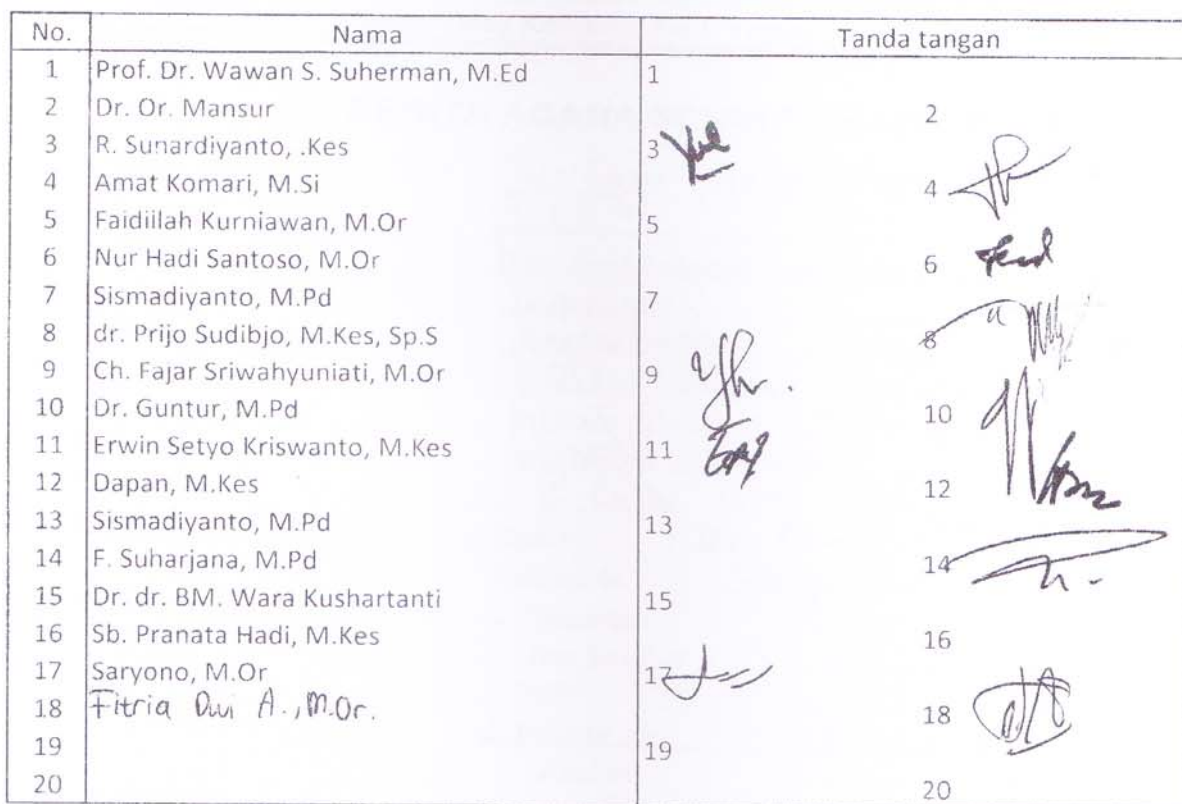 No. Nama Tanda tangan
1 Prof. Dr. Wawan S. Suherman, M.Ed 1
2 Dr. Or. Mansur 2
3 R. Sunardiyanto, .Kes 3
4 Amat Komari, M.Si 4
5 Faidillah Kurniawan, M.Or 5
6 Nur Hadi Santoso, M.Or 6
7 Sismadiyanto, M.Pd 7
8 dr. Prijo Sudibjo, M.Kes, Sp.S 8
9 Ch. Fajar Sriwahyuniati, M.Or 9
10 Dr. Guntur, M.Pd 10
11 Erwin Setyo Kriswanto, M.Kes 11
12 Dapan, M.Kes 12
13 Sismadiyanto, M.Pd 13
14 F. Suharjana, M.Pd 14
15 Dr. dr. BM. Wara Kushartanti 15
16 Sb. Pranata Hadi, M.Kes 16
17 Saryono, M.Or 17
18 Fitria Dwi A., M.Or. 18
19 19
20 20